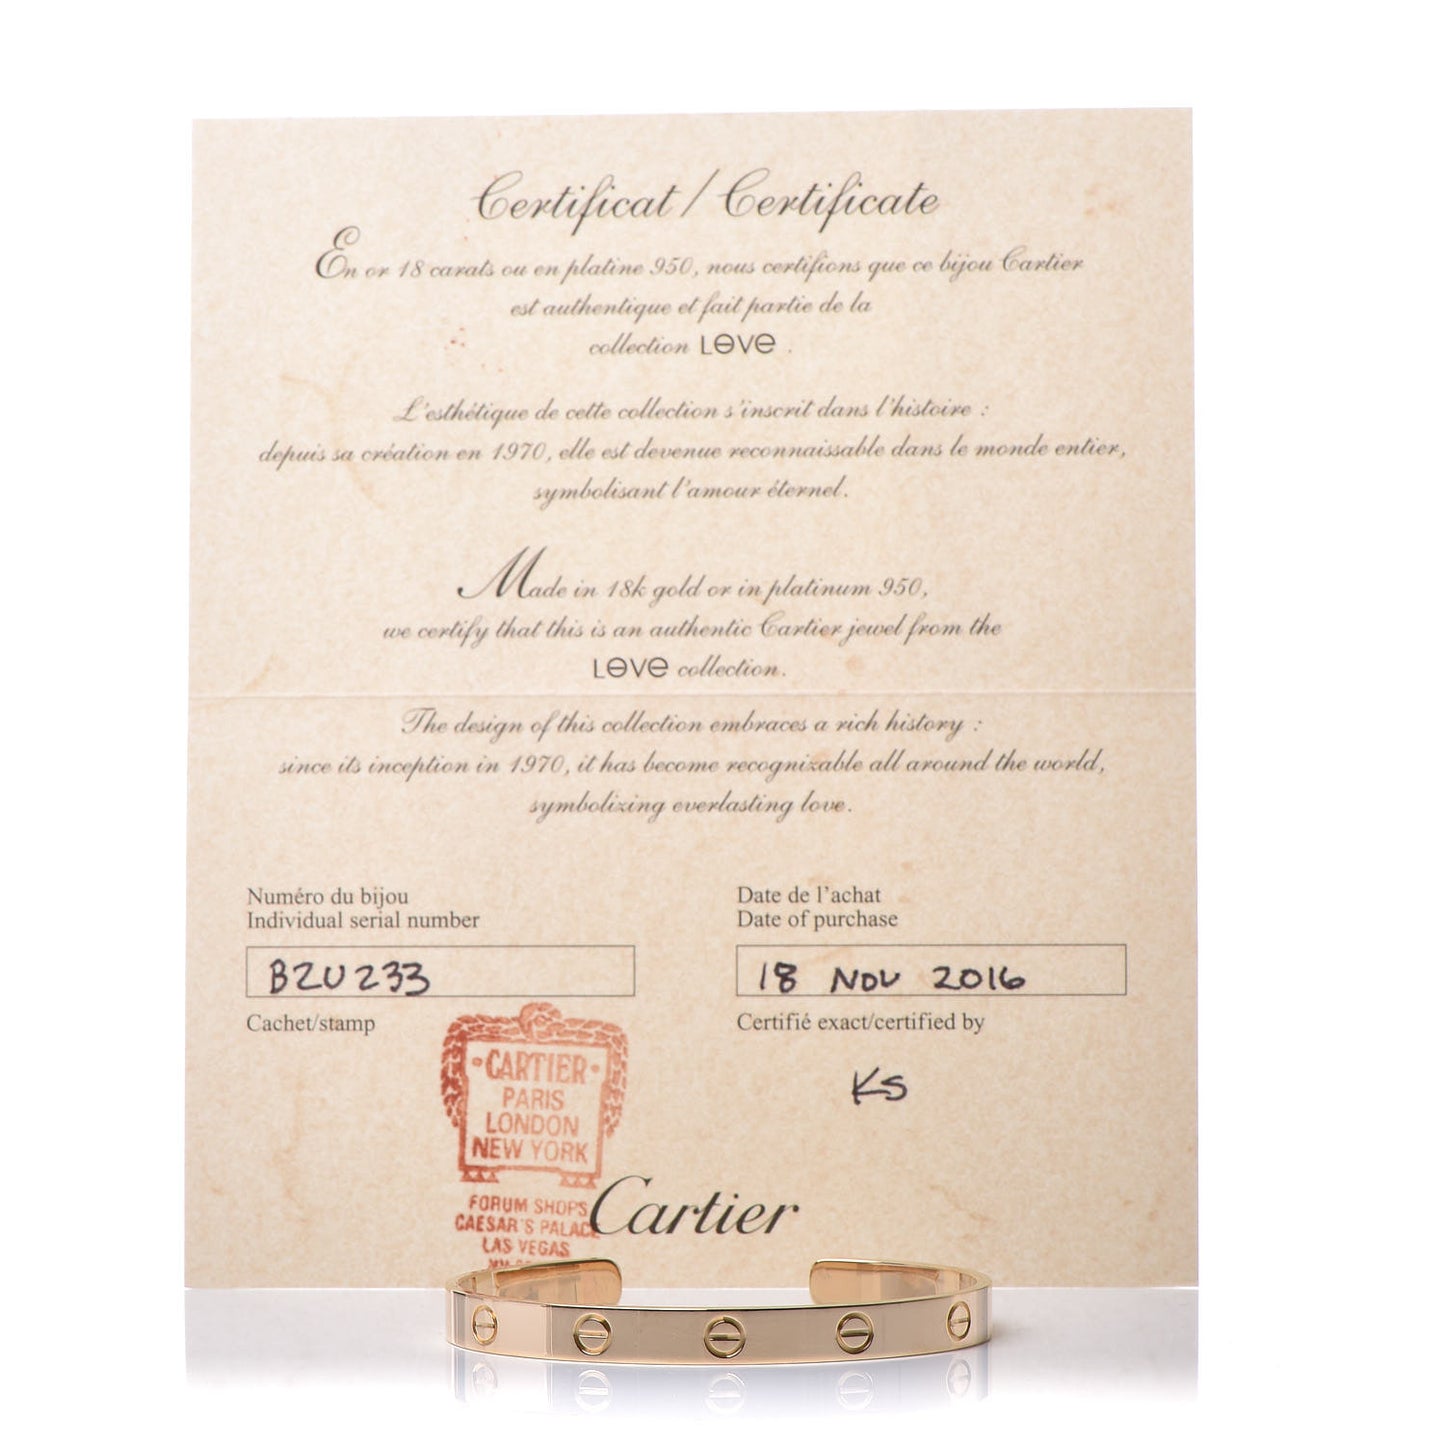 Certificat / Certificate
En or 18 carats ou en platine 950, nous certifions que ce bijou Cartier
est authentique et fait partie de la
collection LOVE .
L'esthétique de cette collection s'inscrit dans l'histoire :
depuis sa création en 1970, elle est devenue reconnaissable dans le monde entier,
symbolisant l'amour éternel.
Made in 18k gold or in platinum 950,
we certify that this is an authentic Cartier jewel from the
LOVE collection.
The design of this collection embraces a rich history :
since its inception in 1970, it has become recognizable all around the world,
symbolizing everlasting love.
Numéro du bijou
Individual serial number
BZU233
Cachet/stamp
Date de l'achat
Date of purchase
18 NOV 2016
Certifié exact/certified by
KS
·CARTIER·
PARIS
LONDON
NEW YORK
FORUM SHOPS
CAESAR'S PALACE
LAS VEGAS
Cartier